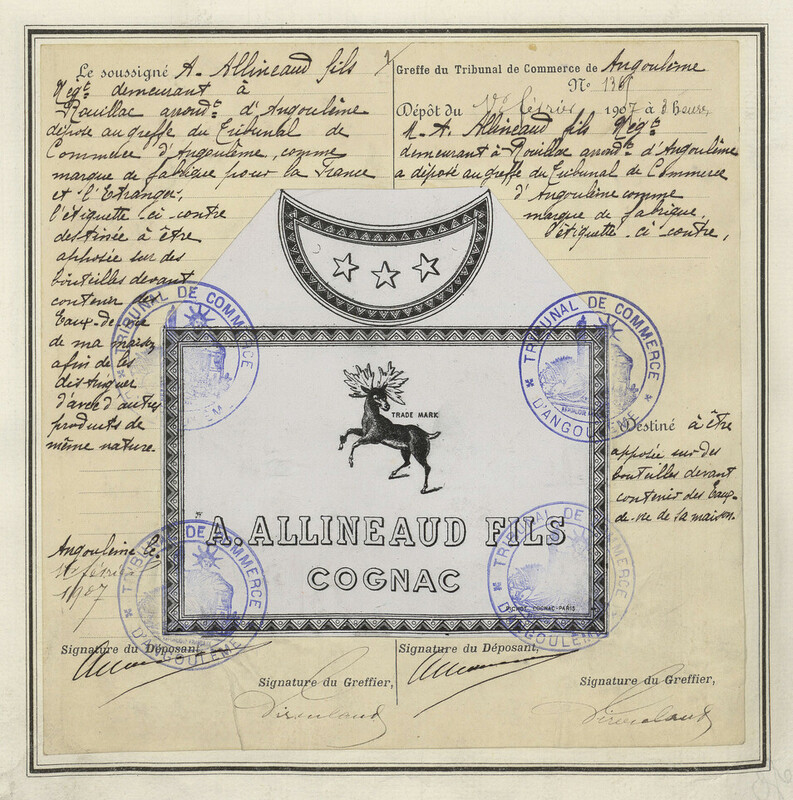 Le soussigné A. Allineaud fils
Négt. demeurant à
Rouillac arrondt. d'Angoulême
dépose au greffe du Tribunal de
Commerce d'Angoulême, comme
marque de fabrique pour la France
et l'Etranger,
l'étiquette ci-contre
destinée à être
apposée sur des
bouteilles devant
contenir les
Eaux-de-vie
de ma maison
afin de les
distinguer
d'avec d'autres
produits de
même nature.
Angoulême le
février
1907
Signature du Déposant,
Signature du Greffier,
Greffe du Tribunal de Commerce de Angoulême
No
Dépôt du février 1907 à 3 heures
M. A. Allineaud fils Négt.
demeurant à Rouillac arrondt. d'Angoulême
a déposé au greffe du Tribunal de Commerce
d'Angoulême comme
marque de fabrique,
l'étiquette ci-contre,
Destiné à être
apposée sur des
bouteilles devant
contenir des Eaux-
de-vie de sa maison.
Signature du Déposant,
Signature du Greffier,
TRADE MARK
A. ALLINEAUD FILS
COGNAC
COGNAC-PARIS
TRIBUNAL DE COMMERCE
D'ANGOULÊME
TRIBUNAL DE COMMERCE
D'ANGOULÊME
TRIBUNAL DE COMMERCE
D'ANGOULÊME
TRIBUNAL DE COMMERCE
D'ANGOULÊME